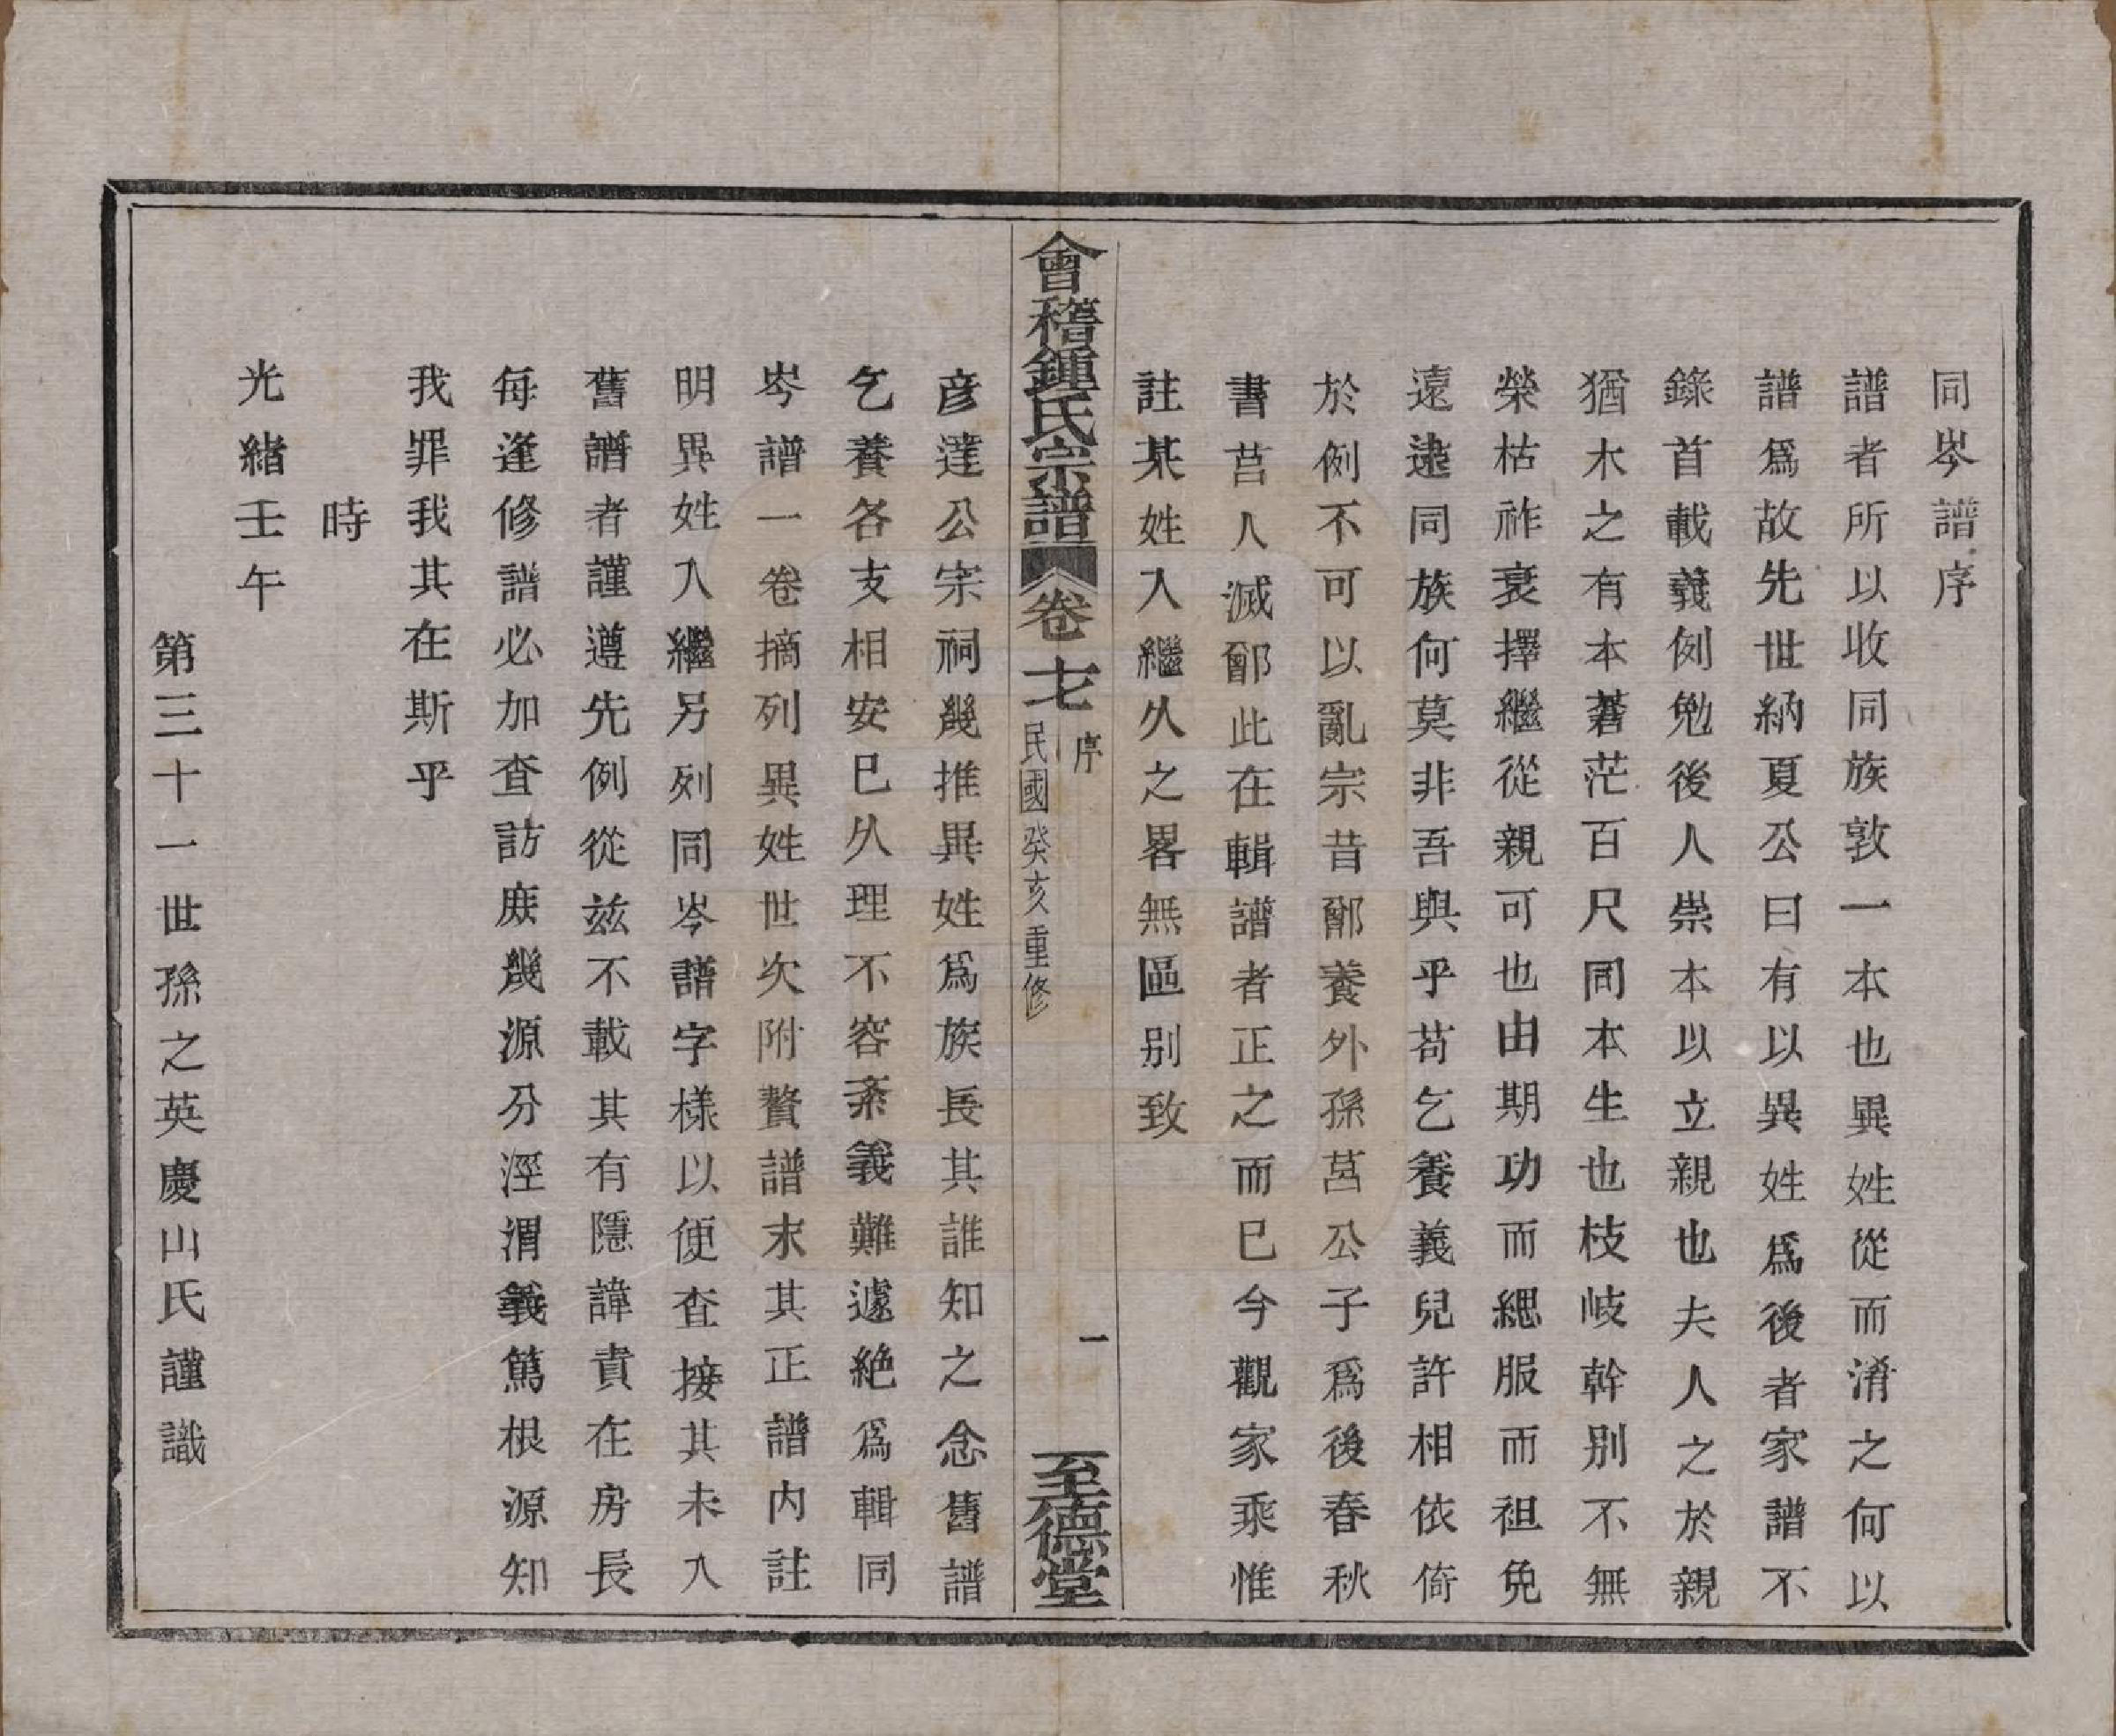 同岑譜序
譜者所以收同族敦一本也異姓從而淆之何以
譜爲故先世納夏公曰有以異姓爲後者家譜不
錄首載義例勉後人崇本以立親也夫人之於親
猶木之有本蒼茫百尺同本生也枝岐幹別不無
榮枯祚衰擇繼從親可也由期功而緦服而袒免
遠逮同族何莫非吾與乎苟乞養義兒許相依倚
於例不可以亂宗昔鄫養外孫莒公子爲後春秋
書莒人滅鄫此在輯譜者正之而已今觀家乘惟
註某姓入繼久之畧無區别致
會稽鍾氏宗譜
卷七
序
民國癸亥重修
一
至德堂
彦達公宗祠幾推異姓爲族長其誰知之念舊譜
乞養各支相安已久理不容紊義難遽絶爲輯同
岑譜一卷摘列異姓世次附贅譜末其正譜内註
明異姓入繼另列同岑譜字樣以便查接其未入
舊譜者謹遵先例從兹不載其有隱諱責在房長
每逢修譜必加查訪庶幾源分涇渭義篤根源知
我罪我其在斯乎
時
光緒壬午
第三十一世孫之英慶山氏謹識